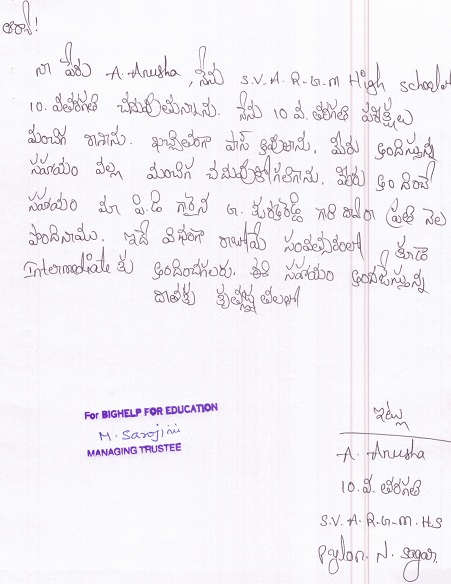 నా పేరు A. Anusha, నేను S.V.A.R.G.M High school లో
10. వ తరగతి చదువుతున్నాను. నేను 10 వ. తరగతి పరీక్షలు
మంచిగ రాశాను. ఖచ్చితంగా పాస్ అవుతాను. మీరు అందిస్తున్న
సహాయం వల్ల మంచిగ చదువుకోగలిగాను. మీరు అందించే
సహాయం మా పి.డి గారైన గారి ద్వారా ప్రతి నెల
పొందినాము. ఇదే విధంగా రాబోయే సంవత్సరంలో కూడా
Intermediate కు అందించగలరు. సహాయం అందజేస్తున్న
దాతకు కృతజ్ఞతలు
For BIGHELP FOR EDUCATION
M. Sarojini
MANAGING TRUSTEE
ఇట్లు
A. Anusha
10. వ. తరగతి
S.V.A.R.G.M.H.S
Pylon. N. Sagar.